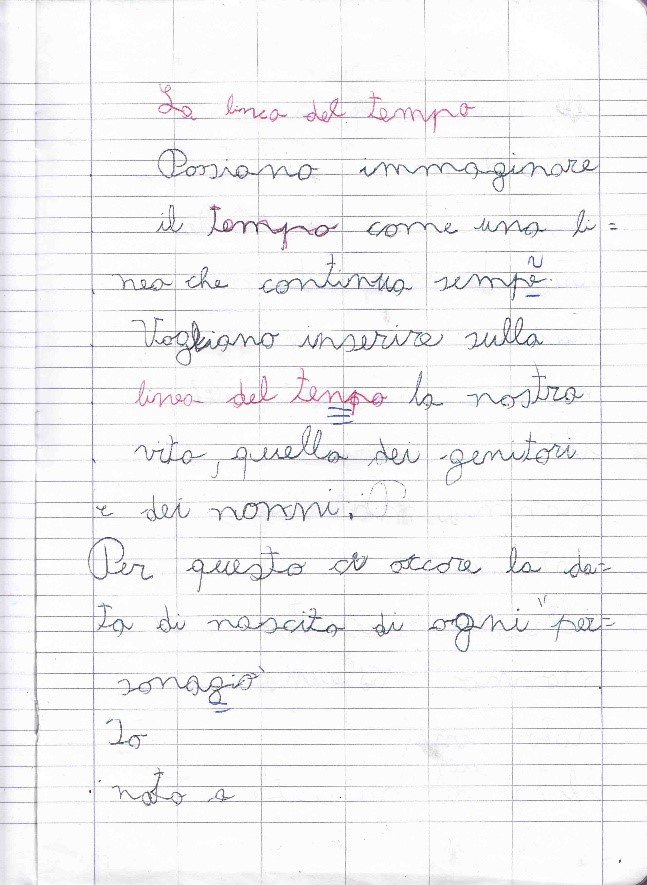 La linea del tempo
Possiano immaginare
il tempo come una li=
nea che continua sempe.
Vogliano inserire sulla
linea del tenpo la nostra
vita, quella dei genitori
e dei nonni.
Per questo ci occore la da=
ta di nascita di ogni "per=
sonagio"
Io
nato a